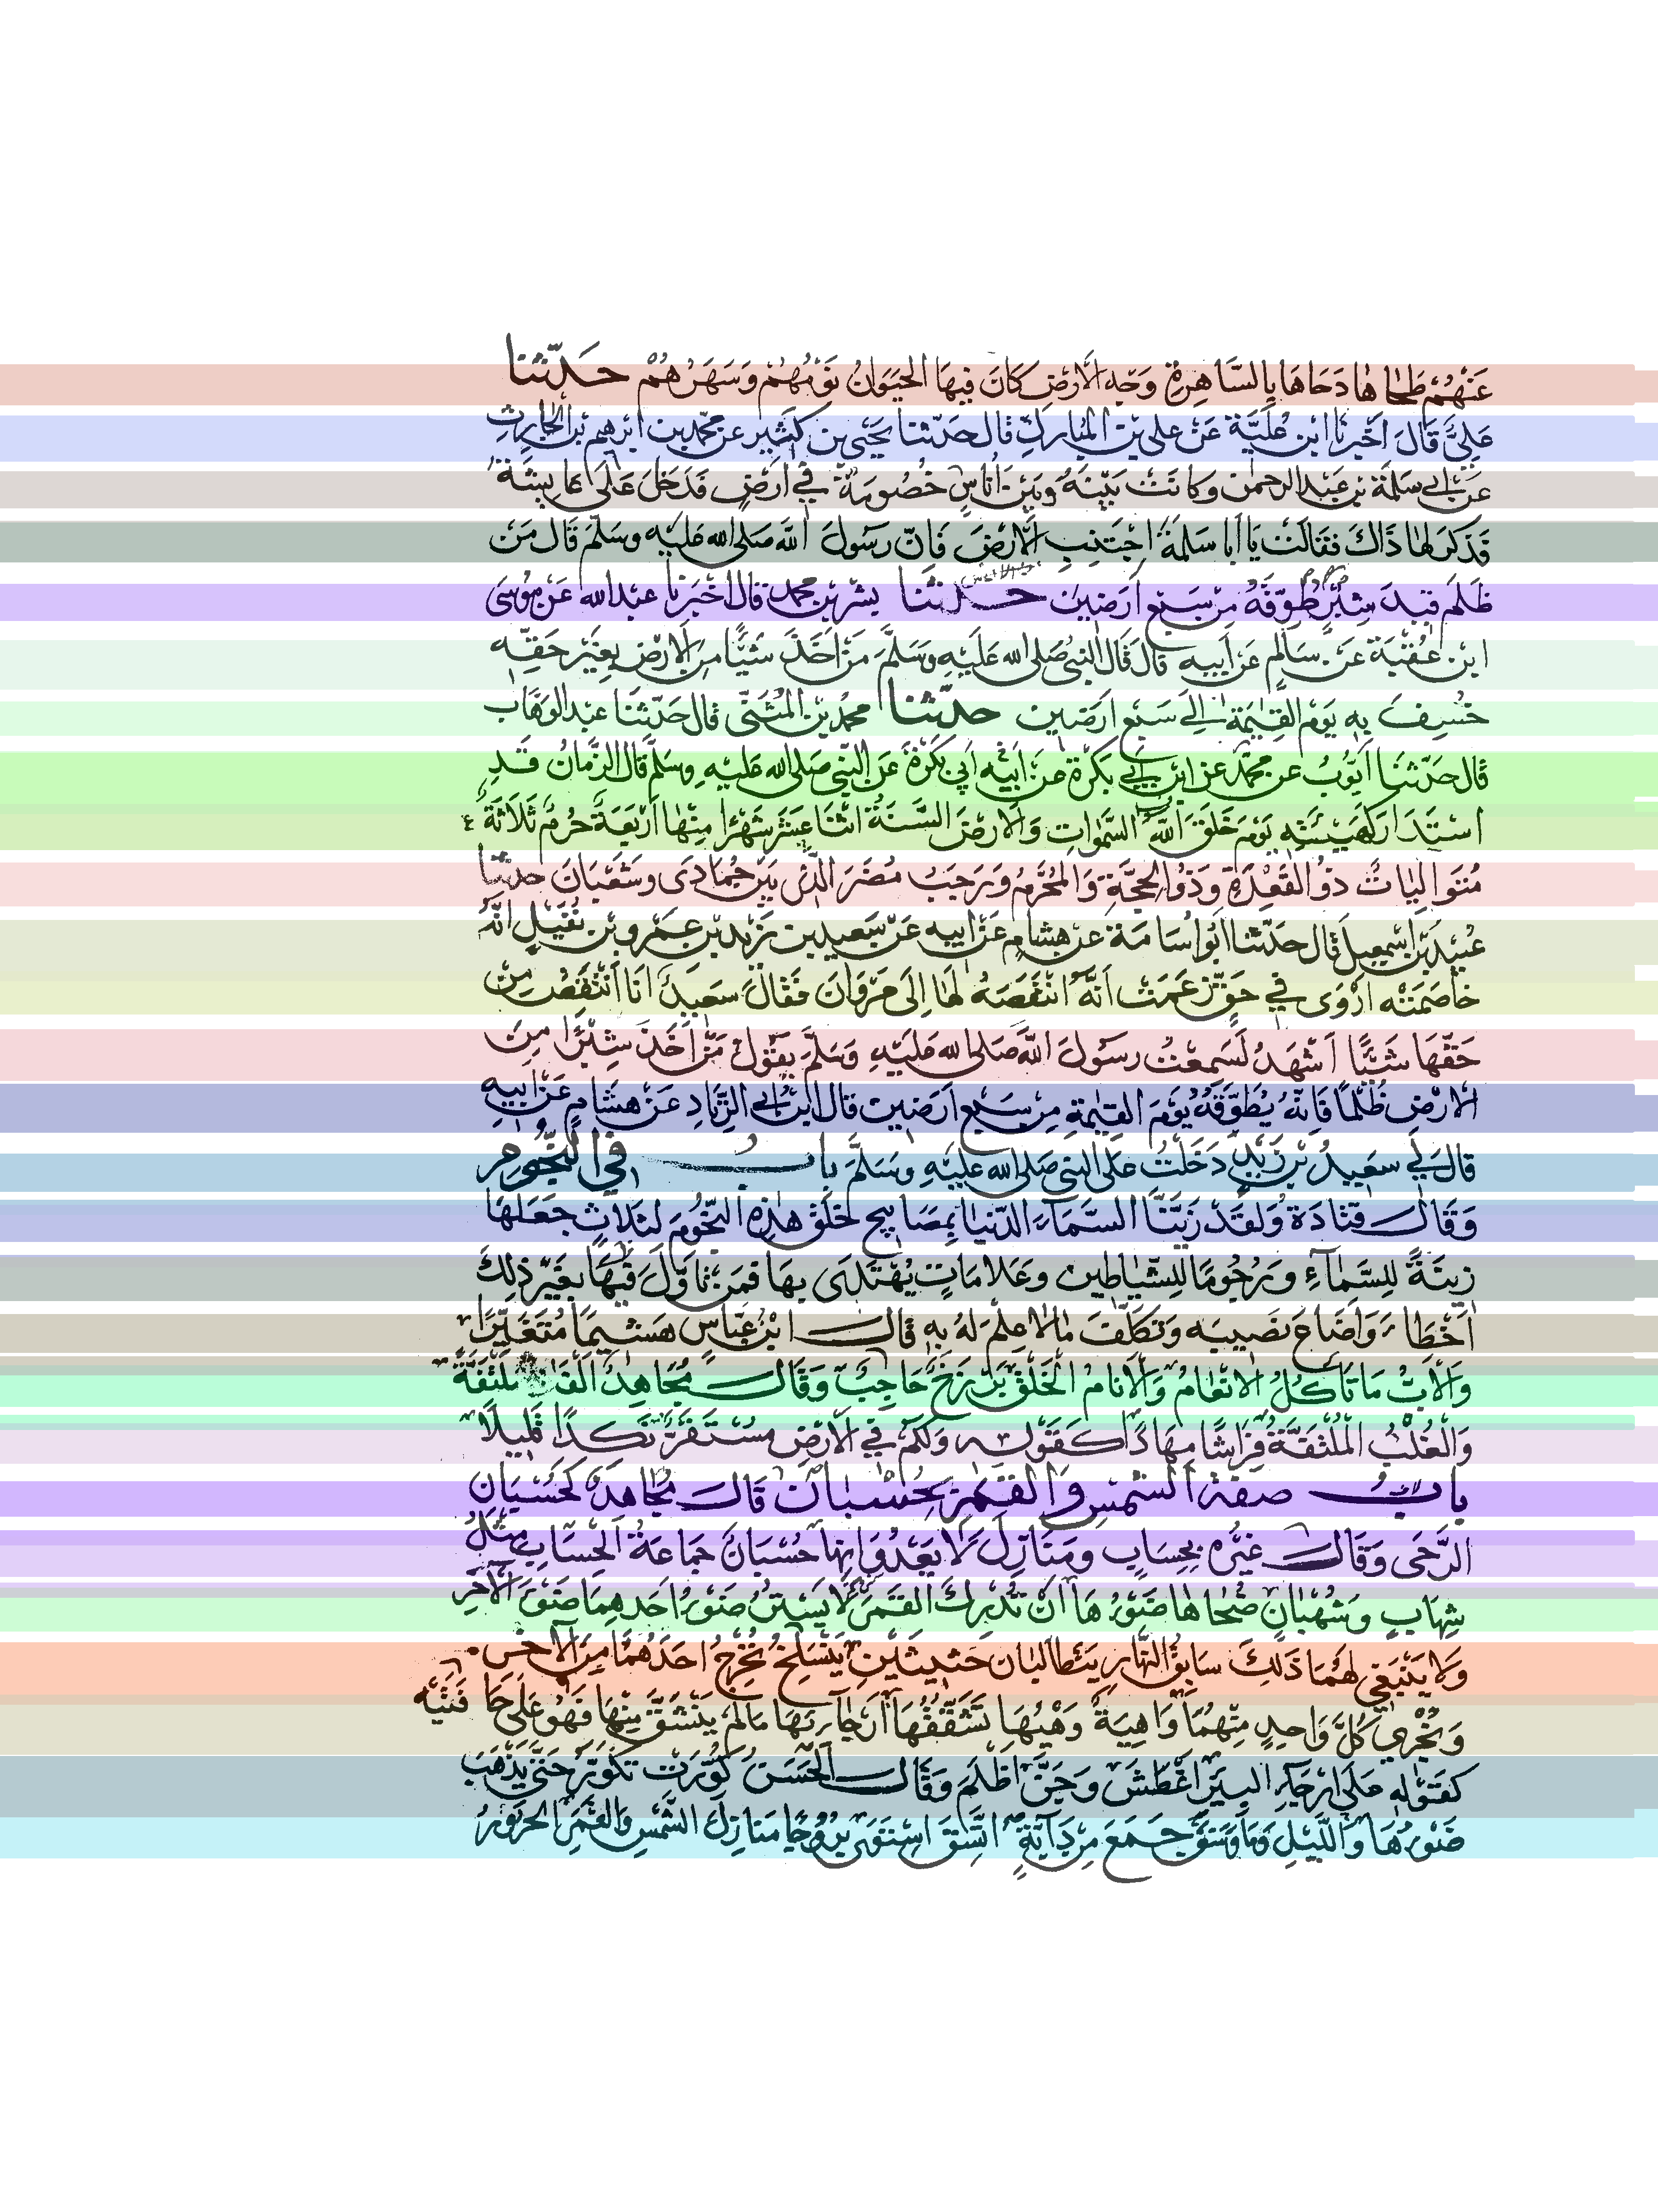 عَنْهُمْ طَحَاهَا دَحَاهَا بِالسَّاهِرَةِ وَجْهِ الْأَرْضِ كَانَ فِيهَا الْحَيَوَانُ نَوْمُهُمْ وَسَهَرُهُمْ حَدَّثَنَا
عَلِيٌّ قَالَ أَخْبَرَنَا ابْنُ عُلَيَّةَ عَنْ عَلِي بْنِ الْمُبَارَكِ قَالَ حَدَّثَنَا يَحْيَى بْنُ كَثِيرٍ عَنْ مُحَمَّدِ بْنِ ابْرهِيمَ بْنِ الْحَارِثِ
عَنْ أَبِي سَلَمَةَ بْنِ عَبْدِ الرَّحْمٰنِ وَكَانَتْ بَيْنَهُ وَبَيْنَ أُنَاسٍ خُصُومَةٌ فِي أَرْضٍ فَدَخَلَ عَلَى عَايِشَةَ
فَذَكَرَ لَهَا ذَاكَ فَقَالَتْ يَا أَبَا سَلَمَةَ اجْتَنِبِ الْأَرْضَ فَإِنَّ رَسُولَ اللهِ صَلَى الله عَلَيْهِ وَسَلَّمَ قَالَ مَنْ
ظَلَمَ قِيدَ شِبْرٍ طُوِّقَهُ مِنْ سَبْعِ أَرَضِينَ حَدَّثَنَا بِشْرُ بْنُ مُحَمَّدٍ قَالَ أَخْبَرَنَا عَبْدُ اللهِ عَنْ مُوسَى
ابْنِ عُقْبَةَ عَنْ سَالِمٍ عَنْ أَبِيهِ قَالَ قَالَ النَّبِيُّ صَلَى الله عَلَيْهِ وَسَلَّمَ مَنْ أَخَذَ شَيْئًا مِنَ الْأَرْضِ بِغَيْرِ حَقِّهِ
خُسِفَ بِهِ يَوْمَ الْقِيٰمَةِ إِلَى سَبْعِ أَرَضِينَ حَدَّثَنَا مُحَمَّدُ بْنُ الْمُثَنَّى قَالَ حَدَّثَنَا عَبْدُ الْوَهَّابِ
قَالَ حَدَّثَنَا أَيُّوبُ عَنْ مُحَمَّدٍ عَنِ ابْنِ أَبِي بَكْرَةَ عَنْ أَبِيهِ أَبِي بَكْرَةَ عَنِ النَّبِيِّ صَلَى الله عَلَيْهِ وَسَلَّمَ قَالَ الزَّمَانُ قَدِ
اسْتَدَارَ كَهَيْئَتِهِ يَوْمَ خَلَقَ اللهُ السَّمٰوَاتِ وَالْأَرْضَ السَّنَةُ اثْنَا عَشَرَ شَهْرًا مِنْهَا أَرْبَعَةٌ حُرُمٌ ثَلَاثَةٌ
مُتَوَالِيَاتٌ ذُو الْقَعْدَةِ وَذُو الْحِجَّةِ وَالْمُحَرَّمُ وَرَجَبُ مُضَرَ الَّذِي بَيْنَ جُمَادَى وَشَعْبَانَ حَدَّثَنَا
عُبَيْدُ بْنُ إِسْمٰعِيلَ قَالَ حَدَّثَنَا أَبُو أُسَامَةَ عَنْ هِشَامٍ عَنْ أَبِيهِ عَنْ سَعِيدِ بْنِ زَيْدِ بْنِ عَمْرِو بْنِ نُفَيْلٍ أَنَّهُ
خَاصَمَتْهُ أَرْوَى فِي حَقٍّ زَعَمَتْ أَنَّهُ انْتَقَصَهُ لَهَا إِلَى مَرْوَانَ فَقَالَ سَعِيدٌ أَنَا أَنْتَقِصُ مِنْ
حَقِّهَا شَيْئًا أَشْهَدُ لَسَمِعْتُ رَسُولَ اللهِ صَلَى الله عَلَيْهِ وَسَلَّمَ يَقُولُ مَنْ أَخَذَ شِبْرًا مِنَ
الْأَرْضِ ظُلْمًا فَإِنَّهُ يُطَوَّقُهُ يَوْمَ الْقِيٰمَةِ مِنْ سَبْعِ أَرَضِينَ قَالَ ابْنُ أَبِي الزِّنَادِ عَنْ هِشَامٍ عَنْ أَبِيهِ
قَالَ لِي سَعِيدُ بْنُ زَيْدٍ دَخَلْتُ عَلَى النَّبِيِّ صَلَى الله عَلَيْهِ وَسَلَّمَ بَابٌ فِي النُّجُومِ
وَقَالَ قَتَادَةُ وَلَقَدْ زَيَّنَّا السَّمَاءَ الدُّنْيَا بِمَصَابِيحَ خَلَقَ هٰذِهِ النُّجُومَ لِثَلَاثٍ جَعَلَهَا
زِينَةً لِلسَّمَاءِ وَرُجُومًا لِلشَّيَاطِينِ وَعَلَامَاتٍ يُهْتَدَى بِهَا فَمَنْ تَأَوَّلَ فِيهَا بِغَيْرِ ذٰلِكَ
أَخْطَأَ وَأَضَاعَ نَصِيبَهُ وَتَكَلَّفَ مَا لَا عِلْمَ لَهُ بِهِ قَالَ ابْنُ عَبَّاسٍ هَشِيمًا مُتَغَيِّرًا
وَالْأَبُّ مَا تَأْكُلُ الْأَنْعَامُ وَالْأَنَامُ الْخَلْقُ بَرْزَخٌ حَاجِبٌ وَقَالَ مُجَاهِدٌ أَلْفَافًا مُلْتَفَّةً
وَالْغُلْبُ الْمُلْتَفَّةُ فِرَاشًا مِهَادًا كَقَوْلِهِ وَلَكُمْ فِي الْأَرْضِ مُسْتَقَرٌّ نَكِدًا قَلِيلًا
بَابُ صِفَةِ الشَّمْسِ وَالْقَمَرِ بِحُسْبَانٍ قَالَ مُجَاهِدٌ كَحُسْبَانِ
الرَّحَى وَقَالَ غَيْرُهُ بِحِسَابٍ وَمَنَازِلَ لَا يَعْدُوَانِهَا حُسْبَانٌ جَمَاعَةُ الْحِسَابِ مِثْلُ
شِهَابٍ وَشُهْبَانٍ ضُحَاهَا ضَوْءُهَا أَنْ تُدْرِكَ الْقَمَرَ لَا يَسْتُرُ ضَوْءُ أَحَدِهِمَا ضَوْءَ الْآخَرِ
وَلَا يَنْبَغِي لَهُمَا ذٰلِكَ سَابِقُ النَّهَارِ يَتَطَالَبَانِ حَثِيثَيْنِ يَنْسَلِخُ نُخْرِجُ أَحَدَهُمَا مِنَ الْآخَرِ
وَنُجْرِي كُلَّ وَاحِدٍ مِنْهُمَا وَاهِيَةٌ وَهْيُهَا تَشَقُّقُهَا أَرْجَائِهَا مَا لَمْ يَنْشَقَّ مِنْهَا فَهُوَ عَلَى حَافَتَيْهِ
كَقَوْلِهِ عَلَى أَرْجَاءِ الْبِيرِ أَغْطَشَ وَجَنَّ أَظْلَمَ وَقَالَ الْحَسَنُ كُوِّرَتْ تُكَوَّرُ حَتَّى يَذْهَبَ
ضَوْءُهَا وَاللَّيْلِ وَمَا وَسَقَ جَمَعَ مِنْ دَابَّةٍ اتَّسَقَ اسْتَوَى بُرُوجًا مَنَازِلَ الشَّمْسِ وَالْقَمَرِ الْحَرُورُ